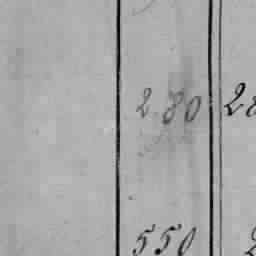 2.80 28
550 2